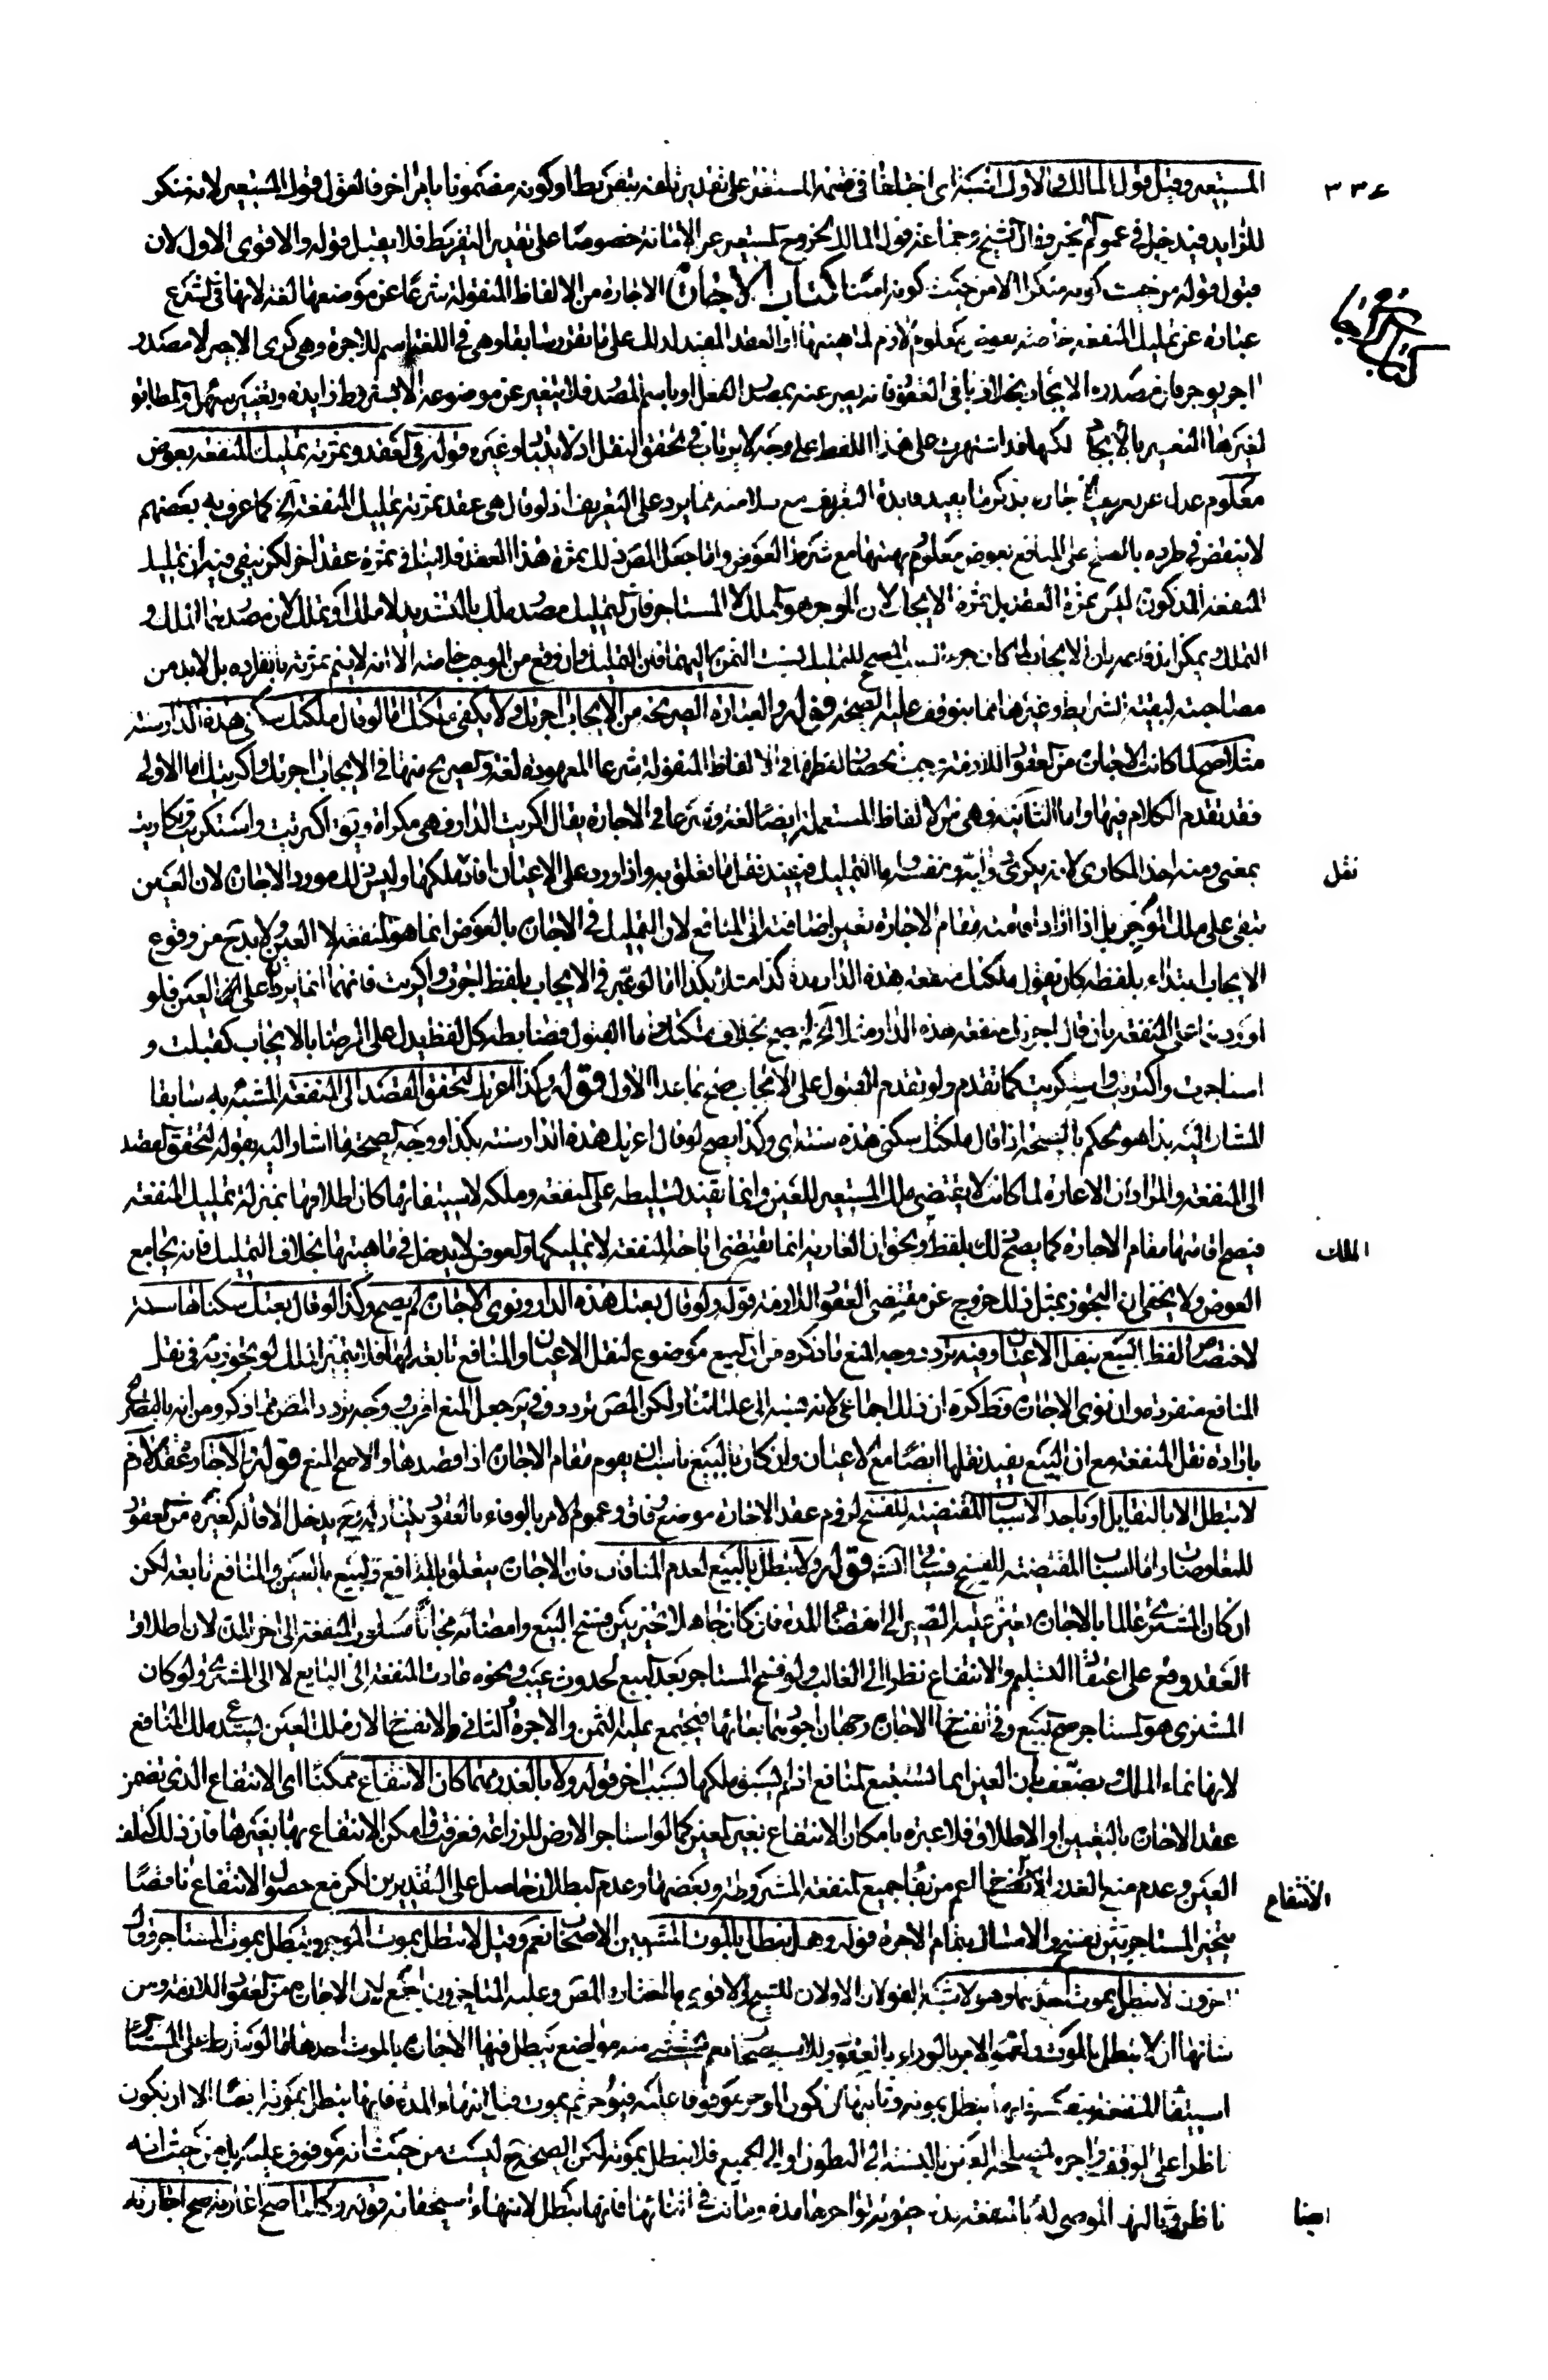 ٣٣٤
المستعير وقيل قول المالك والاول اشبه اى اختلفا فى قيمة المستعار على تقدير تلفه بتفريط او كونه مضمونا بامر اخر فالقول قول المستعير لانه منكر
للزايد فيدخل فى عموم الخبر وقال الشيخ وجماعة قول المالك لخروج المستعير عن الامانة خصوصا على تقدير التفريط فلا يقبل قوله والاقوى الاول لان
قبول قوله من حيث كونه منكرا لا من حيث كونه امينا كتاب الاجارة الاجارة من الالفاظ المنقولة شرعا عن موضعها لغة لانها فى الشرع
كتاب الاجارة
عبارة عن تمليك المنفعة خاصة بعوض معلوم لازم لماهيتها او العقد المفيد لذلك على ما تقرر سابقا وهى فى اللغة اسم للاجرة وهى كرى الاجير لا مصدر
اجر يوجر فان مصدره الايجار بخلاف باقى العقود فانه يعبر عنه بمصدر الفعل او باسم المصدر فلا يتغير عن موضوعه الا بشروط زايدة وتغيير سهل والمطابق
لغيرها التعبير بالايجار لكنها قد اشتهرت على هذا اللفظ على وجه لا يرتاب فى تحقق النقل اذ لا يتبادر غيره قوله فى العقد وثمرته تمليك المنفعة بعوض
معلوم عدل عن تعريف الاجارة بذكر ما يفيد فايدة التعريف مع سلامته مما يرد على التعريف اذ لو قال هى عقد ثمرته تمليك المنفعة الخ كما عرف به بعضهم
لانتقض فى طرده بالصلح على المنافع بعوض معلوم وبهبتها مع شرط العوض وانما جعل المص ذلك ثمرة هذا العقد فلا ينافى ثمرة عقد اخر لكن يبقى فيه ان تمليك
المنفعة المذكورة ليس ثمرة العقد بل ثمرة الايجاب لان الموجر هو المملك لا المستاجر فان التمليك مصدر ملك بالتشديد لا ملك او تملك لان مصدرهما الملك و
التملك ويمكن اندفاعه بان الايجاب لما كان جزء السبب المصحح للتمليك نسبت الثمرة اليهما فان التمليك وان وقع من الموجب خاصة الا انه لا يتم ثمرته بانفراده بل لا بد من
مصاحبته لبقية الشرايط وغيرها مما يتوقف عليه الصحة قوله والعبارة الصريحة من الايجاب اجرتك ولا يكفى ملكتك اما لو قال ملكتك سكنى هذه الدار سنة
مثلا صح لما كانت الاجارة من العقود اللازمة وجب انحصار لفظها فى الالفاظ المنقولة شرعا المعهودة لغة والصريح منها فى الايجاب اجرتك واكريتك اما الاولى
فقد تقدم الكلام فيها واما الثانية فهى من الالفاظ المستعملة ايضا لغة وشرعا فى الاجارة يقال اكريت الدار فهى مكراة ويق اكتريت واستكريت وتكاريت
بمعنى ومنه اخذ المكارى لانه يكرى دابته ونفسه واما التمليك فيفيد نقل ما تعلق به واذا ورد على الاعيان افاد ملكها وليس ذلك مورد الاجارة لان العين
نقل
تبقى على ملك الموجر بل اذا اراد اقامته مقام الاجارة تعين اضافته الى المنافع لان التمليك فى الاجارة بالعوض انما هو للمنفعة لا العين ولا بد ح من وقوع
الايجاب ابتداء بلفظه كان يقول ملكتك منفعة هذه الدار مدة كذا مثلا بكذا اما لو عبر فى الايجاب بلفظ اجرت واكريت فانهما انما يردان على العين فلو
اوردهما على المنفعة بان قال اجرتك منفعة هذه الدار مثلا الخ لم يصح بخلاف ملكتك واما القبول فضابطه كل لفظ يدل على الرضا بالايجاب كقبلت و
استاجرت واكتريت واستكريت كما تقدم ولو تقدم القبول على الايجاب صح بما عدا الاول قوله وكذا اعرتك لتحقق القصد الى المنفعة المشبه به سابقا
المشار اليه بذا هو الحكم بالصحة اذا قال ملكتك سكنى هذه سنة اى وكذا يصح لو قال اعرتك هذه الدار سنة بكذا ووجه الصحة ما اشار اليه بقوله لتحقق القصد
الى المنفعة والمراد ان الاعارة لما كانت لا يقتضى ملك المستعير للعين وانما تفيد تسليطه على المنفعة وملكه لاستيفائها كان اطلاقها بمنزلة تمليك المنفعة
فيصح اقامتها مقام الاجارة كما يصح ذلك بلفظ والحق ان العارية انما تقتضى اباحة المنفعة لا تمليكها والعوض لا يدخل فى ماهيتها بخلاف التمليك فانه يجامع
الملك
العوض ولا يخفى ان التجوز بمثل ذلك خروج عن مقتضى العقود اللازمة قوله ولو قال بعتك هذه الدار ونوى الاجارة لم يصح وكذا لو قال بعتك سكناها سنة
لاختصاص لفظ البيع بنقل الاعيان وفيه تردد وجه المنع ما ذكره من ان البيع موضوع لنقل الاعيان والمنافع تابعة لها فلا يثمر الملك لو تجوز به فى نقل
المنافع منفردة وان نوى الاجارة وفى التذكرة ان ذلك اجماعى لانه نسبه الى علمائنا ولكن المص تردد وفى ير جعل المنع اقرب ووجه تردد المص مما ذكر ومن انه بالتصريح
بارادة نقل المنفعة مع ان البيع يفيد نقلها ايضا مع الاعيان وان كان بالتبع ناسب ان يقوم مقام الاجارة اذا قصدها والاصح المنع قوله والاجارة عقد لازم
لا تبطل الا بالتقايل او باحد الاسباب المقتضية للفسخ لزوم عقد الاجارة موضع وفاق وعموم الامر بالوفاء بالعقود يتناوله وح يدخل الاقالة كغيره من العقود
للمعاوضات واما اسباب المقتضية للفسخ فستاتى انشه قوله ولا تبطل بالبيع لعدم المنافاة فان الاجارة يتعلق بالمنافع والبيع بالعين والمنافع تابعة لكن
ان كان المشترى عالما بالاجارة تعين عليه الصبر الى انقضاء المدة فان كان جاهلا تخير بين فسخ البيع وامضائه مجانا مسلوب المنفعة الى اخر المدة لان اطلاق
العقد وقع على اعتقاد التسليم والانتفاع نظرا الى الغالب ولو فسخ المستاجر بعد البيع لحدوث عيب ونحوه عادت المنفعة الى البايع لا الى المشترى ولو كان
المشترى هو المستاجر صح البيع وفى انفساخ الاجارة وجهان اجودهما بقائها فيجتمع عليه الثمن والاجرة والثانى الانفساخ لان ملك العين يستدعى ملك المنافع
لانها نماء الملك ويضعف بان العين انما تستتبع المنافع اذا لم يسبق ملكها لسبب اخر قوله ولا بالعذر مهما كان الانتفاع ممكنا اى الانتفاع الذى تضمنه
عقد الاجارة بالتعيين او الاطلاق فلا عبرة بامكان الانتفاع بغير المعين كما لو استاجر الارض للزراعة فغرقت وامكن الانتفاع بها بغيرها فان ذلك كتلف
العين وعدم منع العذر الانتفاع اعم من بقاء جميع المنفعة المشروطة وبعضها وعدم البطلان حاصل على التقديرين لكن مع حصول الانتفاع ناقصا
الانتفاع
يتخير المستاجر بين الفسخ والامساك بتمام الاجرة قوله وهل تبطل بالموت المشهور بين الاصحاب نعم وقيل لا تبطل بموت الموجر وتبطل بموت المستاجر وقال
اخرون لا تبطل بموت احدهما وهو الاشبه القولان الاولان للشيخ والاقوى ما اختاره المص وعليه المتاخرون اجمع لان الاجارة من العقود اللازمة ومن
شانها ان لا تبطل بالموت ولعموم الامر بالوفاء بالعقود وللاستصحاب نعم يستثنى منه مواضع تبطل فيها الاجارة بالموت احدها ما لو شرط على المستاجر
استيفاء المنفعة بنفسه فانها تبطل بموته وثانيها ان يكون الموجر موقوفا عليه فيؤجر ثم يموت قبل انتهاء المدة فانها تبطل بموته ايضا الا ان يكون
ناظرا على الوقف واجره لمصلحة العين بالنسبة الى البطون او الى الجميع فلا تبطل بموته لكن الصحة ح ليست من حيث انه موقوف عليه بل من حيث انه
ناظر وثالثها الموصى له بالمنفعة مدة حيوته لو اجرها مدة ومات فى اثنائها فانها تبطل لانتهاء استحقاقه قوله وكلما صح اعارته صح اجارته